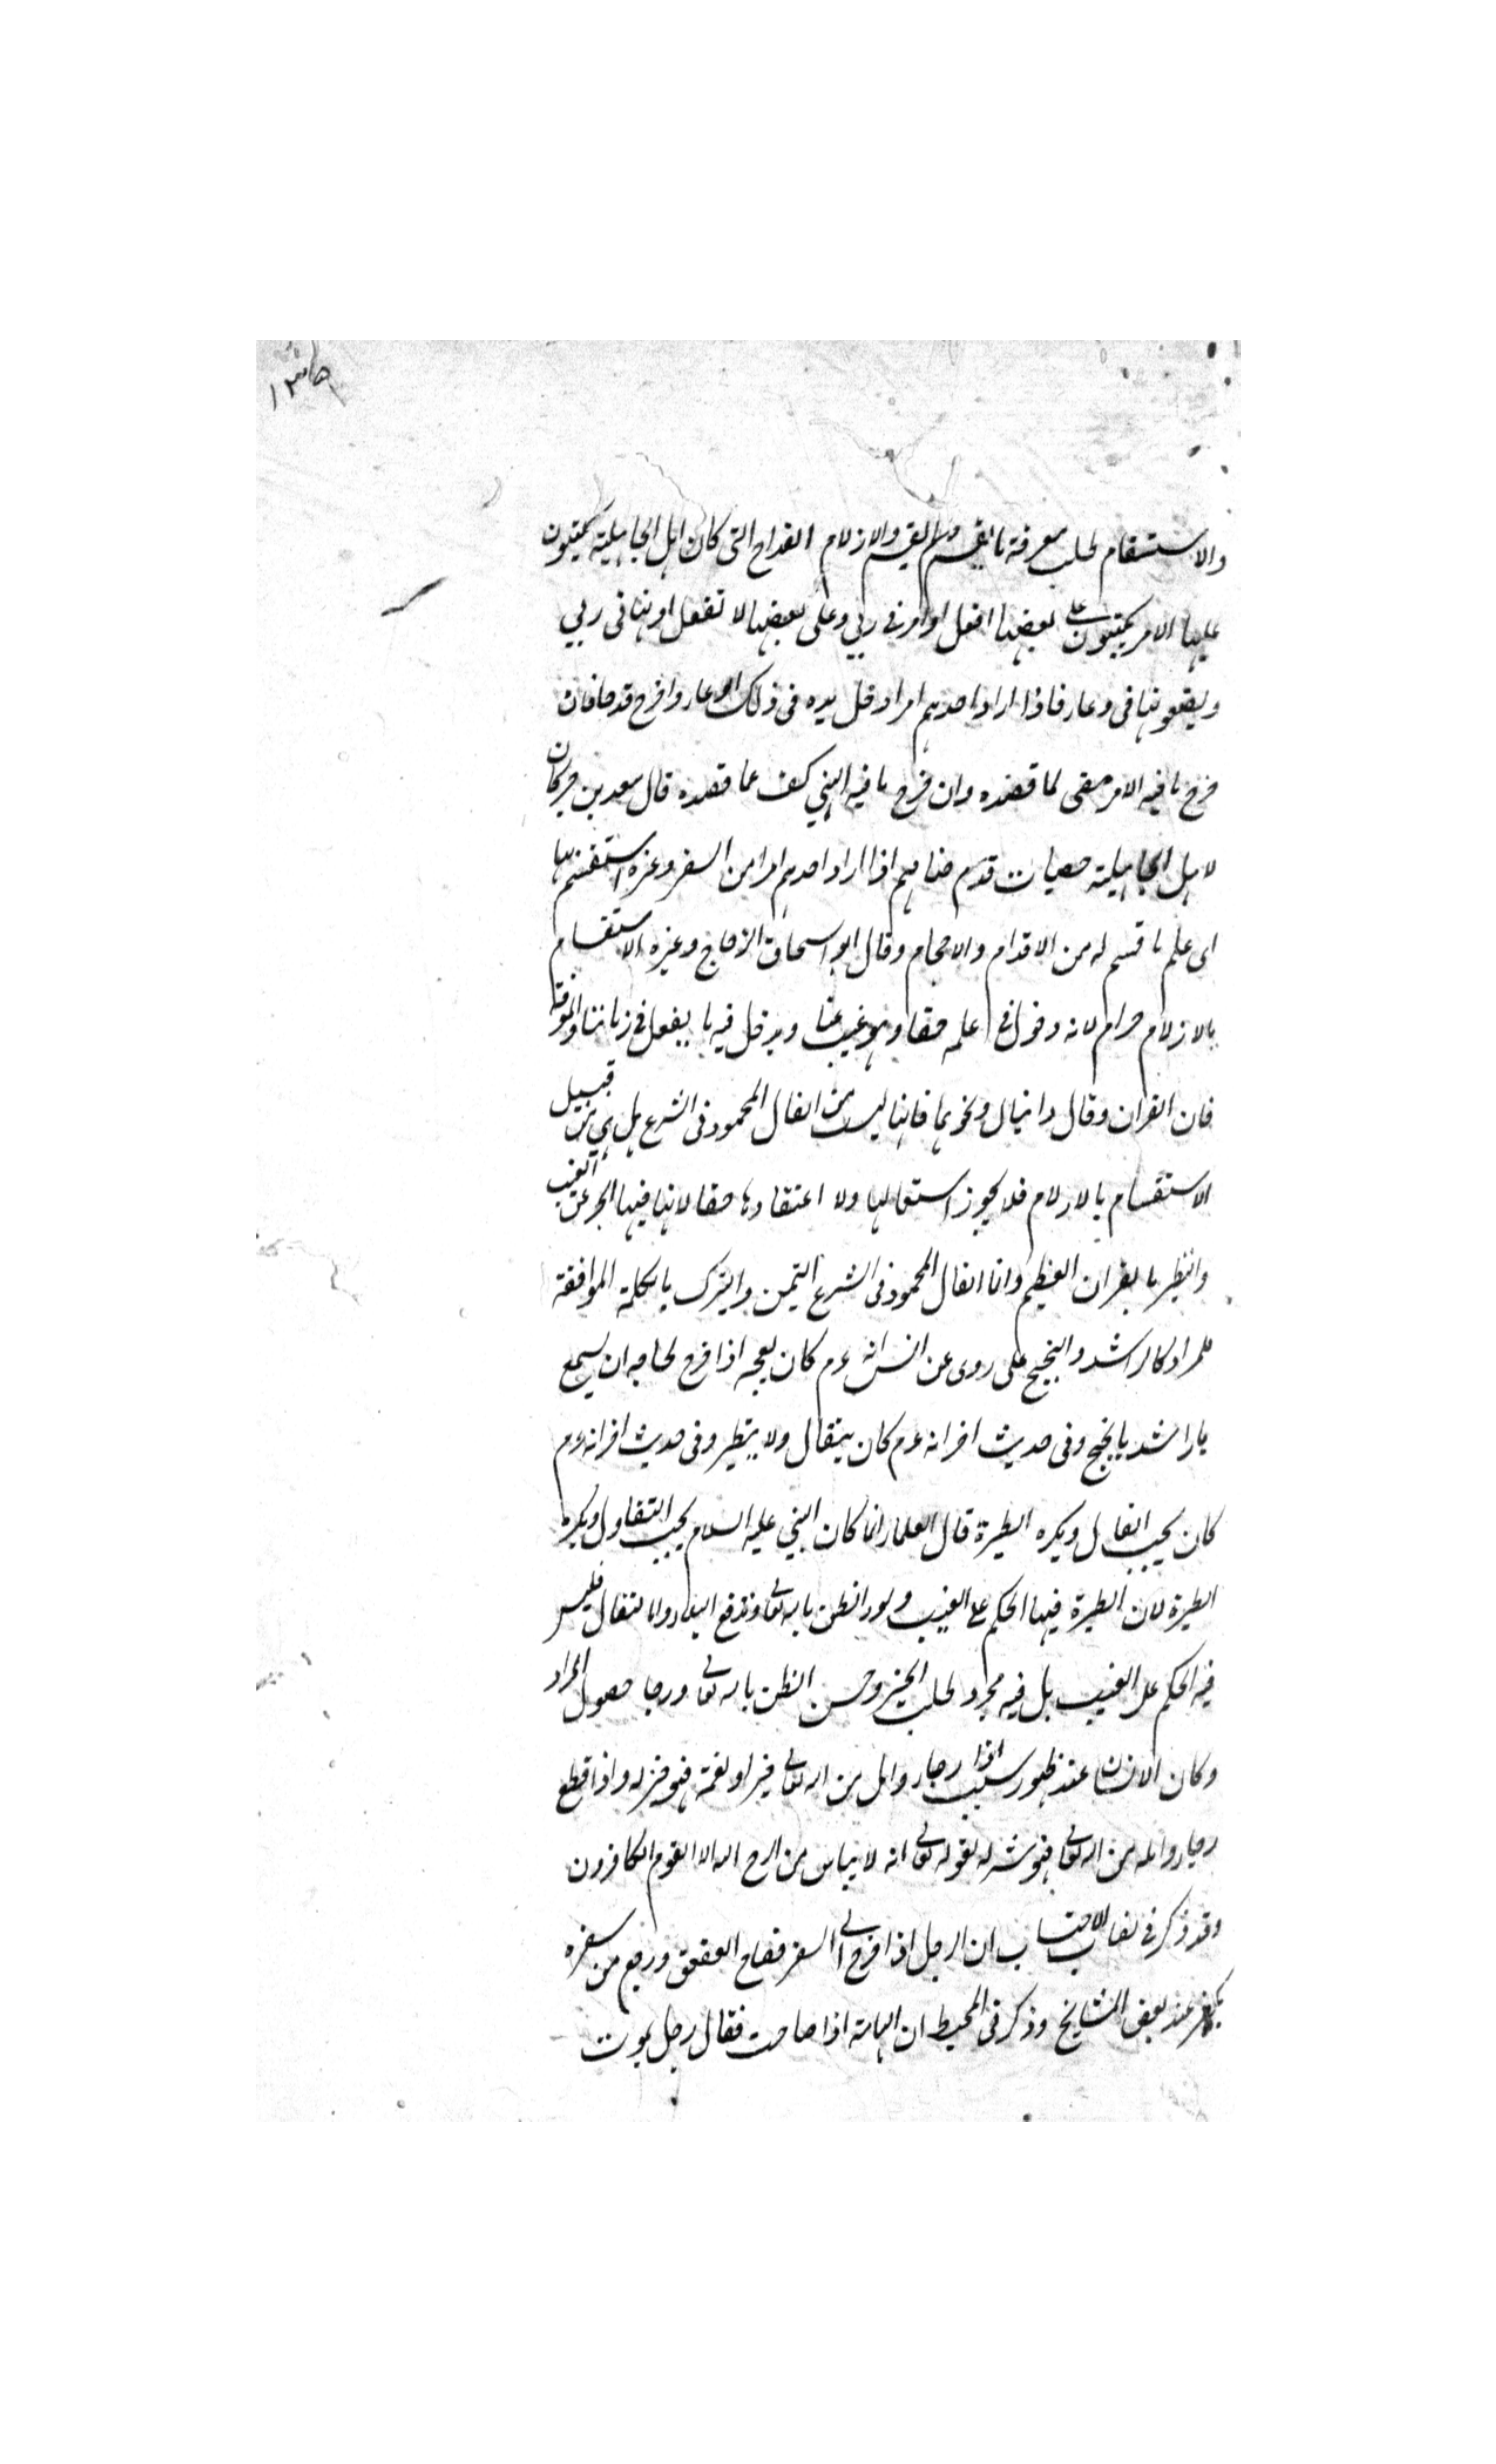 والاستقسام طلب معرفة ما يقسم وما لم يقسم والازلام القداح التى كان اهل الجاهلية يكتبون
عليها الامر يكتبون على بعضها افعل او امرنى ربى وعلى بعضها لا تفعل او نهانى ربى
ويضعونها فى وعاء فاذا اراد احدهم امرا دخل يده فى ذلك الوعاء واخرج قدحا فان
خرج ما فيه الامر مضى لما قصده وان خرج ما فيه النهى كف عما قصده قال سعد بن كان
لاهل الجاهلية حصيات قدم اذا اراد احدهم امرا من السفر وغيره استقسم بها
اى علم ما قسم له من الاقدام والاحجام وقال ابو اسحاق الزجاج وغيره الاستقسام
بالازلام حرام لانه دخول فى علمه حقا وهو غيب عنا ويدخل فيه ما يفعل فى زماننا
فان القران وفال دانيال ونحوهما فانها ليست من الفال المحمود فى الشرع بل هى من قبيل
الاستقسام بالازلام فلا يجوز استعمالها ولا اعتقادها حقا لانها فيها الخبر عن الغيب
والتطير بالقران العظيم وانما الفال المحمود فى الشرع التيمن والتبرك بالكلمة الموافقة
للمراد كالراشد والنجيح على روى عن انس انه ءم كان يعجبه اذا خرج لحاجه ان يسمع
يا راشد يا نجيح وفى حديث اخر انه ءم كان يتفال ولا يتطير وفى حديث اخر انه ءم
كان يحب الفال ويكره الطيرة قال العلماء انما كان النبى عليه السلام يحب التفاول ويكره
الطيرة لان الطيرة فيها الحكم على الغيب وسوء الظن بالله تعالى وتوقع البلاء واما التفال فليس
فيه الحكم على الغيب بل فيه مجرد طلب الخير وحسن الظن بالله تعالى ورجا حصول المراد
وكان الانسان عند ظهور سبب اذا رجاء وامل من الله تعالى خيرا او نعمة فهو خير له واذا قطع
رجاءه وامله من الله تعالى فهو شر له لقوله تعالى انه لا يياس من روح الله الا القوم الكافرون
وقد ذكر فى نصاب الاحتساب ان الرجل اذا خرج الى السفر فصاح العقعق ورجع من سفره
يكفر عند بعض المشايخ وذكر فى المحيط ان الهامة اذا صاحت فقال رجل يموت